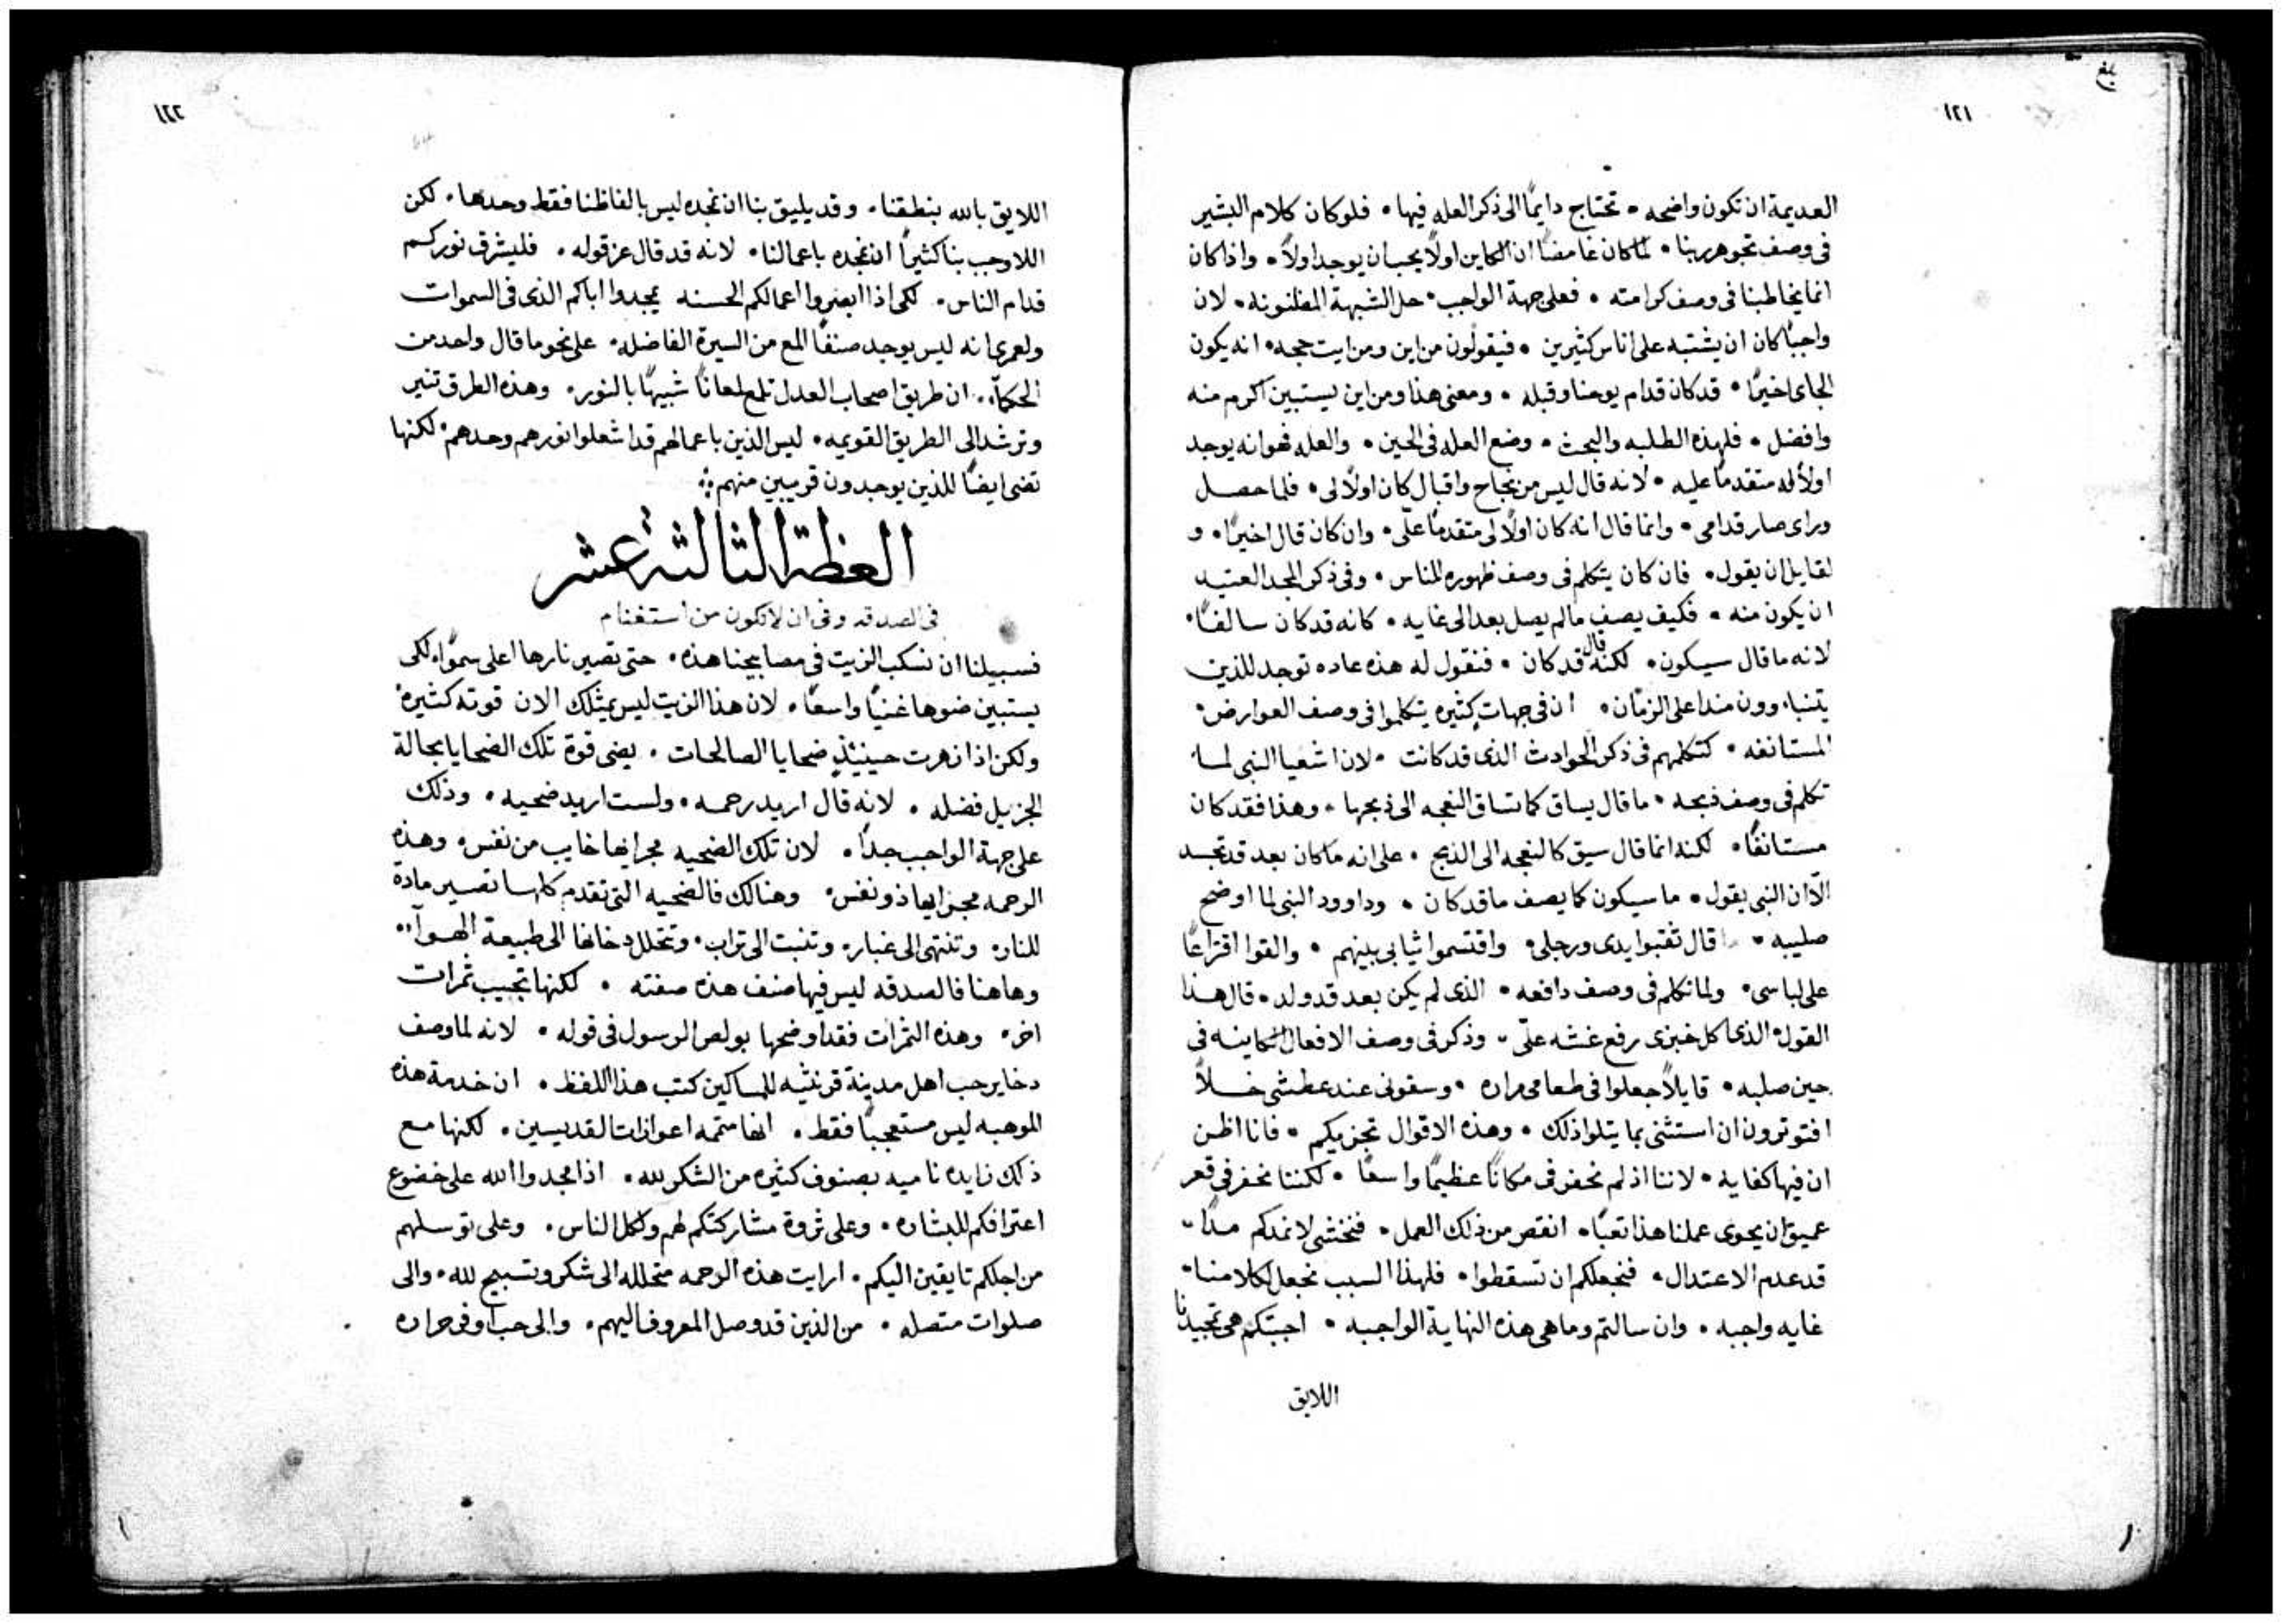 بلغ
١٢١
العديمة ان تكون واضحه • تحتاج دايمًا الى ذكر العله فيها • فلو كان كلام البشير
فى وصف تجوهر ربنا • لما كان غامضًا ان الكاين اولًا يجب ان يوجد اولًا • واذا كان
انما يخاطبنا فى وصف كرامته • فعلى جهة الواجب • حل الشبهة المظنونه • لان
واجبًا كان ان يشتبه على اناس كثيرين • فيقولون من اين ومن ايت حجه • انه يكون
الجاى اخيرًا • قد كان قدام يوحنا وقبله • ومعنى هذا ومن اين يستبين اكرم منه
وافضل • فلهذه الطلبه والبحث • وضع العله فى الحين • والعله فهو انه يوجد
اولًا له متقدمًا عليه • لانه قال ليس من نجاح واقبال كان اولًا لى • فلما حصل
وراى صار قدامى • وانما قال انه كان اولًا لى متقدمًا علّى • وان كان قال اخيرًا • و
لقايل ان يقول • فان كان يتكلم فى وصف ظهوره للناس • وفى ذكر المجد العتيد
ان يكون منه • فكيف يصف ما لم يصل بعد الى غايه • كانه قد كان سالفًا •
لانه ما قال سيكون • لكنه قال قد كان • فنقول له هذه عاده توجد للذين
يتنباوون منذ اعلى الزمان • ان فى جهات كثيره يتكلموا فى وصف العوارض •
المستانفه • كتكلمهم فى ذكر الحوادث الذى قد كانت • لان اشعيا النبى لما
تكلم فى وصف ذبحه • ما قال يساق كما تساق النعجه الى ذبحها • وهذا فقد كان
مستانفًا • لكنه انما قال سيق كالنعجه الى الذبح • على انه ما كان بعد قد تجسد
الّا ان النبى يقول • ما سيكون كما يصف ما قد كان • وداوود النبى لما اوضح
صليبه • قال ثقبوا يدى ورجلى • واقتسموا ثيابى بينهم • والقوا اقتراعًا
على لباسى • ولما تكلم فى وصف دافعه • الذى لم يكن بعد قد ولد • قال هذا
القول • الذى اكل خبزى رفع غشه علّى • وذكر فى وصف الافعال الكاينه فى
حين صلبه • قايلًا جعلوا فى طعامى مراره • وسقونى عند عطشى خلًا
افتوثرون ان استثنى بما يتلوا ذلك • وهذه الاقوال تجزيكم • فانا اظن
ان فيها كفاية • لاننا اذ لم نحفر فى مكانًا عظيمًا واسعًا • لكننا نحفر فى قعر
عميق ان يحوى عملنا هذا تعبًا • انقص من ذلك العمل • فنخشى لا نمدكم مدًا •
قد عدم الاعتدال • فنجعلكم ان تسقطوا • فلهذا السبب نجعل لكلامنا •
غايه واجبه • وان سالتم وما هى هذه النهاية الواجبه • اجبتكم هى تمجيدنا
اللايق
١٢٢
اللايق بالله بنطقنا • وقد يليق بنا ان نمجده ليس بالفاظنا فقط وحدها • لكن
اللاوجب بنا كثيرًا ان نمجده باعمالنا • لانه قد قال عز قوله • فليشرق نوركم
قدام الناس • لكى اذا ابصروا اعمالكم الحسنه يمجدوا اباكم الذى فى السموات
ولعمرى انه ليس يوجد صنفًا المع من السيرة الفاضله • على نحو ما قال واحد من
الحكمآ • ان طريق اصحاب العدل تلمع لمعانًا شبيهًا بالنور • وهذه الطرق تنير
وترشد الى الطريق القويمه • ليس الذين باعمالهم قد اشعلوا نورهم وحدهم • لكنها
تضى ايضًا للذين يوجدون قريبين منهم
العظة الثالثة عشر
فى الصدقه وفى ان لا تكون من استغنام
فسبيلنا ان نسكب الزيت فى مصابيحنا هذه • حتى تصير نارها اعلى سموًا • لكى
يستبين ضوها غنيًا واسعًا • لان هذا الزيت ليس يمتلك الان قوته كثيرة
ولكن اذا زهرت حينيذٍ ضحايا الصالحات • يضى قوة تلك الضحايا بحالة
الجزيل فضله • لانه قال اريد رحمه • ولست اريد ضحيه • وذلك
على جهة الواجب جدًا • لان تلك الضحيه مجرايها خايب من نفس • وهذه
الرحمه مجرايها ذو نفس • وهنالك فالضحيه التى تقدم كلها تصير مادة
للنار • وتنتهى الى غبار • وتنبت الى تراب • وتتحلل دخانها الى طبيعة الهوآ ••
وهاهنا فالصدقه ليس فيها صنف هذه صفته • لكنها تجيب ثمرات
اخر • وهذه الثمرات فقد اوضحها بولص الرسول فى قوله • لانه لما وصف
دخاير حب اهل مدينة قرنثيه للمساكين كتب هذا اللفظ • ان خدمة هذه
الموهبه ليس مستعجبًا فقط • انها متممه اعوازات القديسين • لكنها مع
ذلك زايده ناميه بصنوف كثيره من الشكر لله • اذا مجدوا الله على خضوع
اعترافكم للبشاره • وعلى ثروة مشاركتكم لهم ولكل الناس • وعلى توسلهم
من اجلكم تايقين اليكم • ارايت هذه الرحمه متحلله الى شكر وتسبيح لله • والى
صلوات متصله • من الذين قد وصل المعروف اليهم • والى حب اوفى حراره